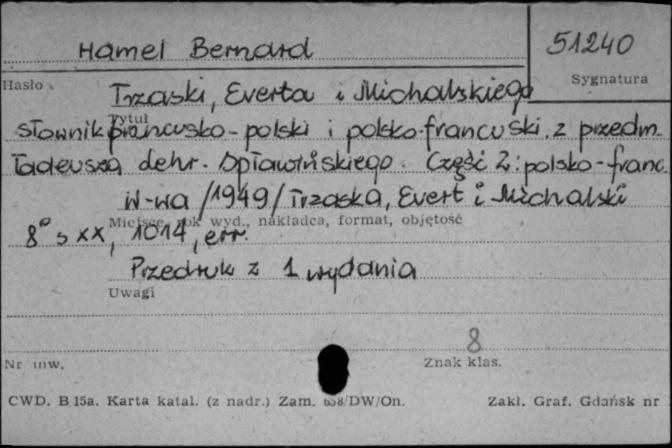 Hamel Bernard
51240
Hasło
Sygnatura
Trzaski, Everta i Michalskiego
Tytuł
słownik francusko-polski i polsko-francuski. z przedm.
Tadeusza Lehr. Spławińskiego. Część 2: polsko-franc.
W-wa /1949/ Trzaska, Evert i Michalski
Miejsce, rok wyd., nakładca, format, objętość
8° s XX, 1014, err.
Przedruk z 1 wydania
Uwagi
8
Nr inw.
Znak klas.
CWD. B 15a. Karta katal. (z nadr.) Zam. 658/DW/On.
Zakł. Graf. Gdańsk nr